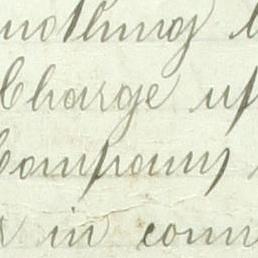 nothing
Charge up
Company
in conn